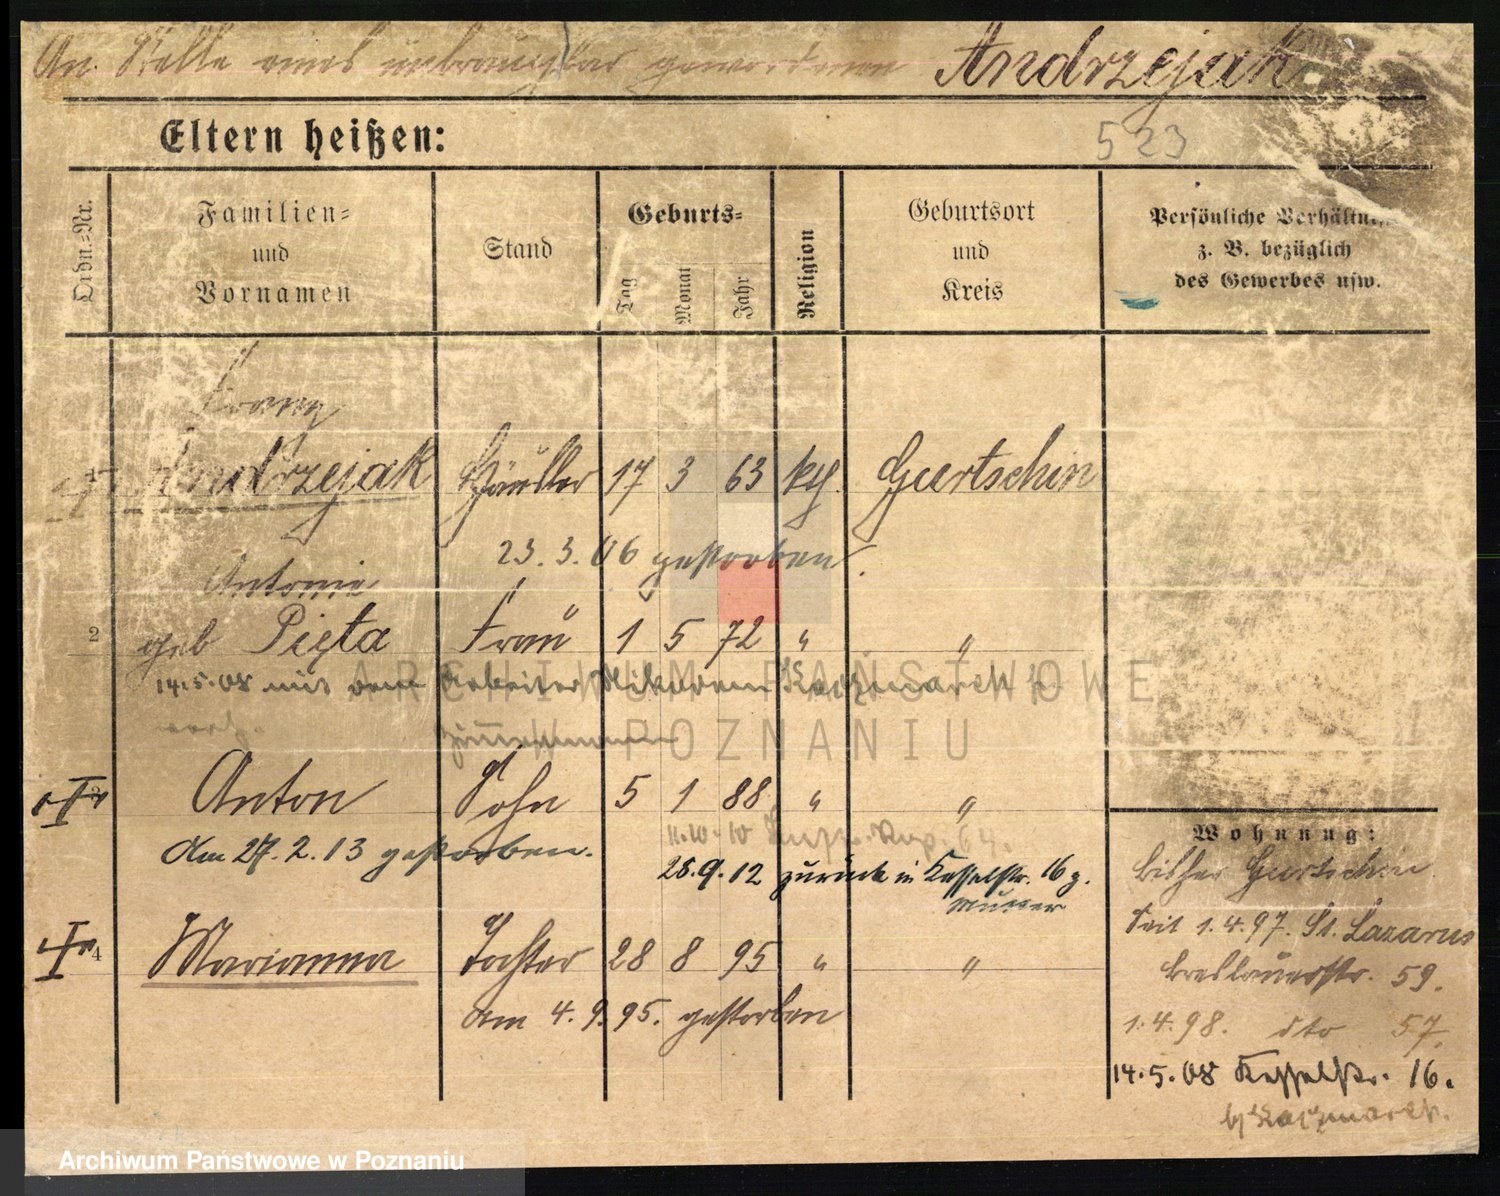 An Stelle eines unbrauchbar gewordenen Andrzejak
Eltern heißen:
523
Ordn.=Nr.
Familien=
und
Vornamen
Stand
Geburts=
Tag
Monat
Jahr
Religion
Geburtsort
und
Kreis
Persönliche Verhältn
z. B. bezüglich
des Gewerbes usw.
Franz
Andrzejak Häusler 17 3 63 kth. Gurtschin
23. 3. 06 gestorben.
Antonie
2 geb Pięta Frau 1 5 72 " "
14.5.08 mit dem Arbeiter Kaczmarek
verh.
Anton Sohn 5 1 88 " "
Am 27. 2. 13 gestorben.
11.10.10
28.9.12 zurück in Kesselstr. 16 z.
Mutter
4 Marianna Tochter 28 8 95 " "
Am 4. 9. 95. gestorben
Wohnung:
bisher Gurtschin
seit 1.4.97. St. Lazarus
Breslauerstr. 59.
1.4.98. dto 57.
14.5.08 Kesselstr. 16.
b/ Kaczmarek.
ARCHIWUM PAŃSTWOWE
W POZNANIU
Archiwum Państwowe w Poznaniu